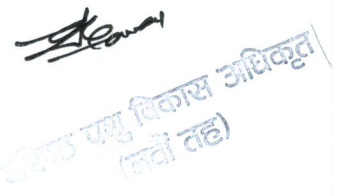 वरिष्ठ पशु विकास अधिकृत
(नवौं तह)